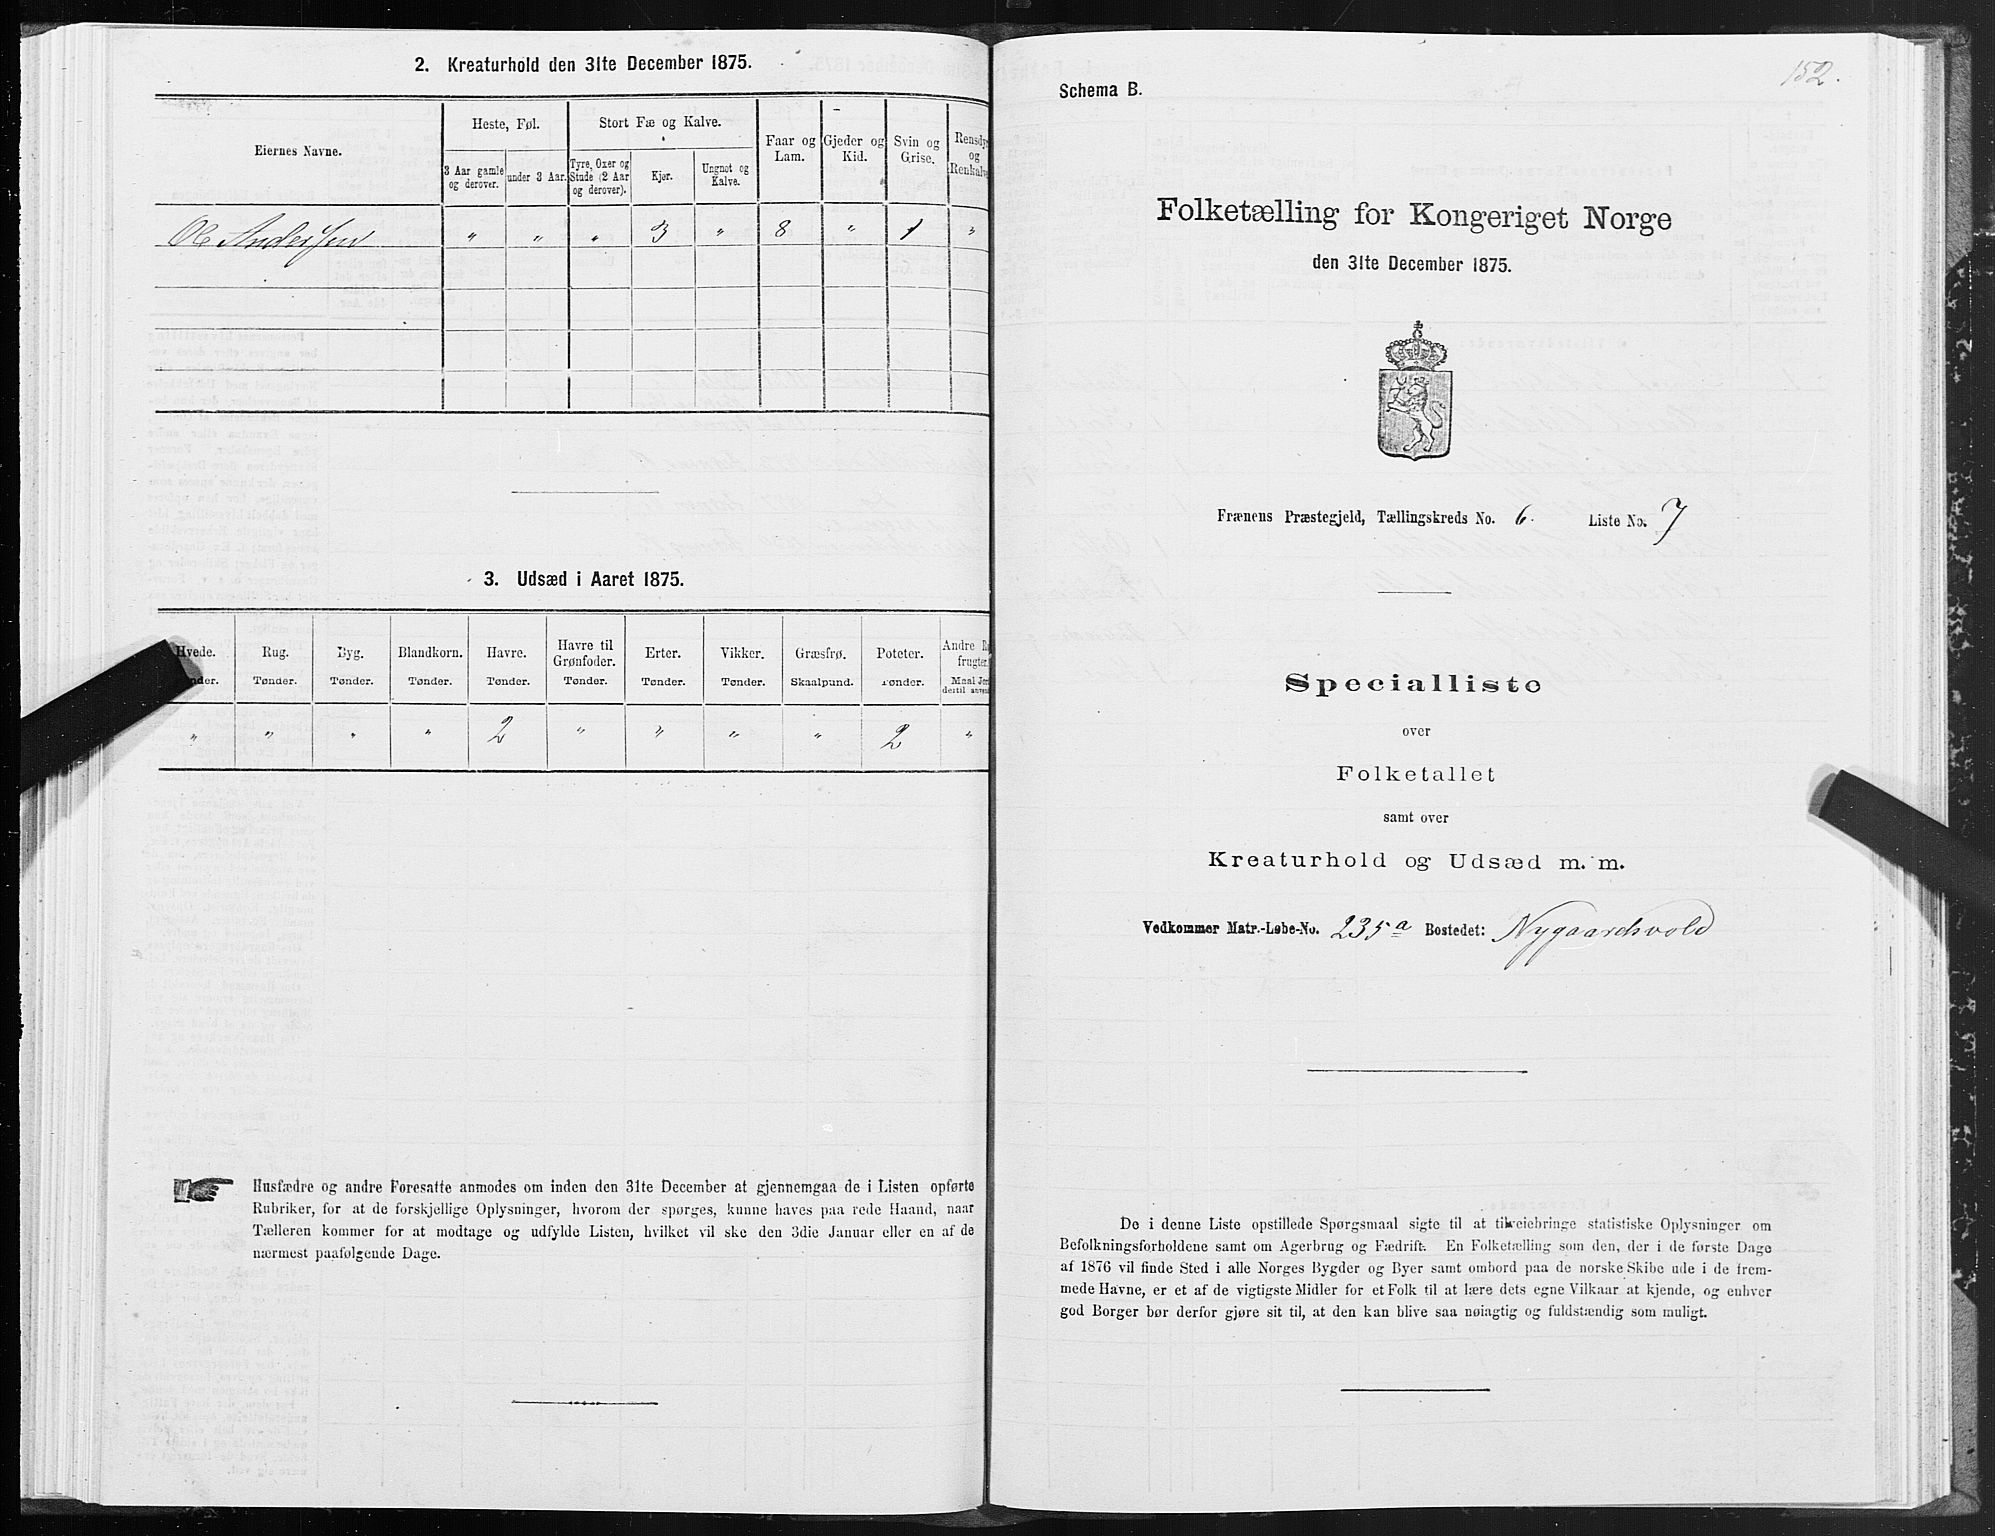 2. Kreaturhold den 31te December 1875.
Eiernes Navne.
Heste, Føl.
Stort Fæ og Kalve.
Faar og Lam.
Gjeder og Kid.
Svin og Grise.
Rensdyr og Renkalve
3 Aar gamle og derover.
under 3 Aar.
Tyre, Oxer og Stude (2 Aar og derover).
Kjør.
Ungnot og Kalve.
Ole Andersen " " " 3 " 8 " 1 "
3. Udsæd i Aaret 1875.
Hvede. Rug. Byg. Blandkorn. Havre. Havre til Grønfoder. Erter. Vikker. Græsfrø. Poteter. Andre frugter.
Tønder. Tønder. Tønder. Tønder. Tønder. Tønder. Tønder. Skaalpund. Tønder. Maal
" " " " 2 " " " " 2 "
Husfædre og andre Foresatte anmodes om inden den 31te December at gjennemgaa de i Listen opførte
Rubriker, for at de forskjellige Oplysninger, hvorom der spørges, kunne haves paa rede Haand, naar
Tælleren kommer for at modtage og udfylde Listen, hvilket vil ske den 3die Januar eller en af de
nærmest paafølgende Dage.
152.
Schema B.
Folketælling for Kongeriget Norge
den 31te December 1875.
Frænens Præstegjeld, Tællingskreds No. 6. Liste No. 7
Specialliste
over
Folketallet
samt over
Kreaturhold og Udsæd m. m.
Vedkommer Matr.-Løbe-No. 235a Bostedet: Nygaardsvold
De i denne Liste opstillede Spørgsmaal sigte til at tilveiebringe statistiske Oplysninger om
Befolkningsforholdene samt om Agerbrug og Fædrift. En Folketælling som den, der i de første Dage
af 1876 vil finde Sted i alle Norges Bygder og Byer samt ombord paa de norske Skibe ude i de frem-
mede Havne, er et af de vigtigste Midler for et Folk til at lære dets egne Vilkaar at kjende, og enhver
god Borger bør derfor gjøre sit til, at den kan blive saa nøiagtig og fuldstændig som muligt.